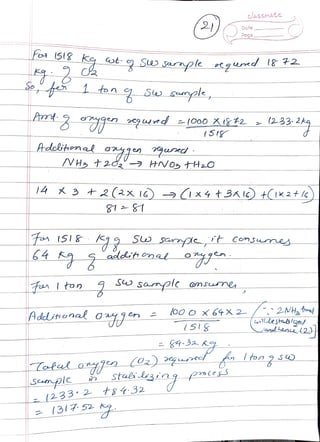 classmate
Date
Page
21
For 1518 Kg wt. of SW sample required 1872
Kg. of O2
So, for 1 ton of SW sample,
Amt. of oxygen required = 1000 X 1872 / 1518 = 1233.2 kg
Additional oxygen required.
NH3 + 2O2 → HNO3 + H2O
14 x 3 + 2(2x16) → (1x4+3x16) + (1x2+16)
81 = 81
For 1518 Kg of SW sample, it consumes
64 Kg of additional oxygen.
For 1 ton of SW sample consumes,
Additional oxygen = 1000 X 64 X 2 / 1518 (∵ 2NH3 will be stabilized and hence (2))
= 84.32 kg.
Total oxygen (O2) required for 1 ton of SW
sample in stabilizing process
= 1233.2 + 84.32
= 1317.52 kg.